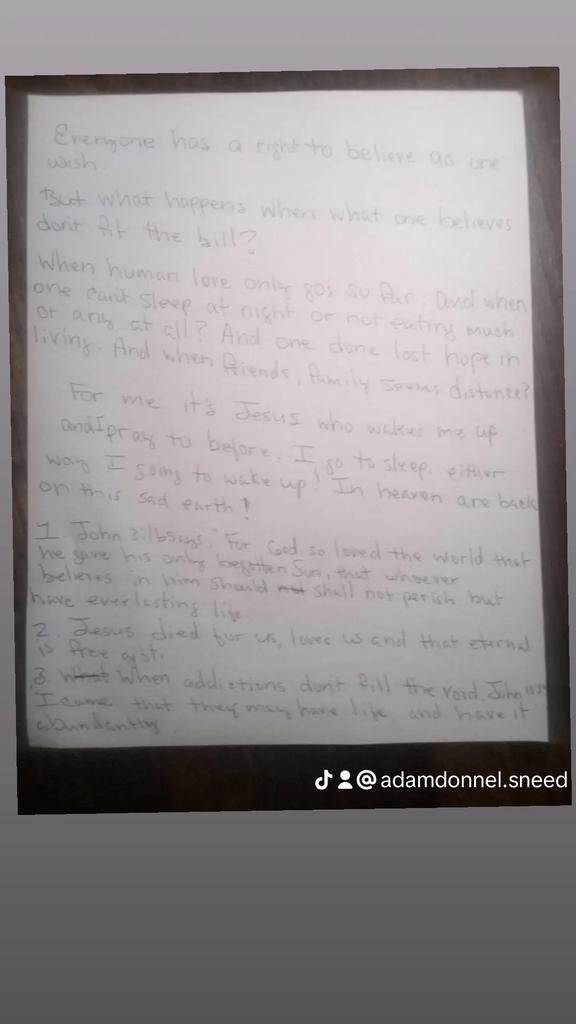 Everyone has a right to believe as one
wish.
But what happens when what one believes
don't fit the bill?
When human love only gos su far. and when
one can't sleep at night or not eating much
or any at all? And one done lost hope in
living. And when friends, family seems distance?
For me it's Jesus who wakes me up
and I pray to before. I go to sleep, either
way I going to wake up! In heaven are back
on this sad earth!
1. John 3:16 says, "For God so loved the world that
he gave his only begotten Sun, that whoever
believes in him should not shall not perish but
have everlasting life.
2. Jesus died for us, loves us and that eternal
is free gist.
3. What When addictions don't fill the void. John
I came that they may have life, and have it
abundantly
@adamdonnel.sneed